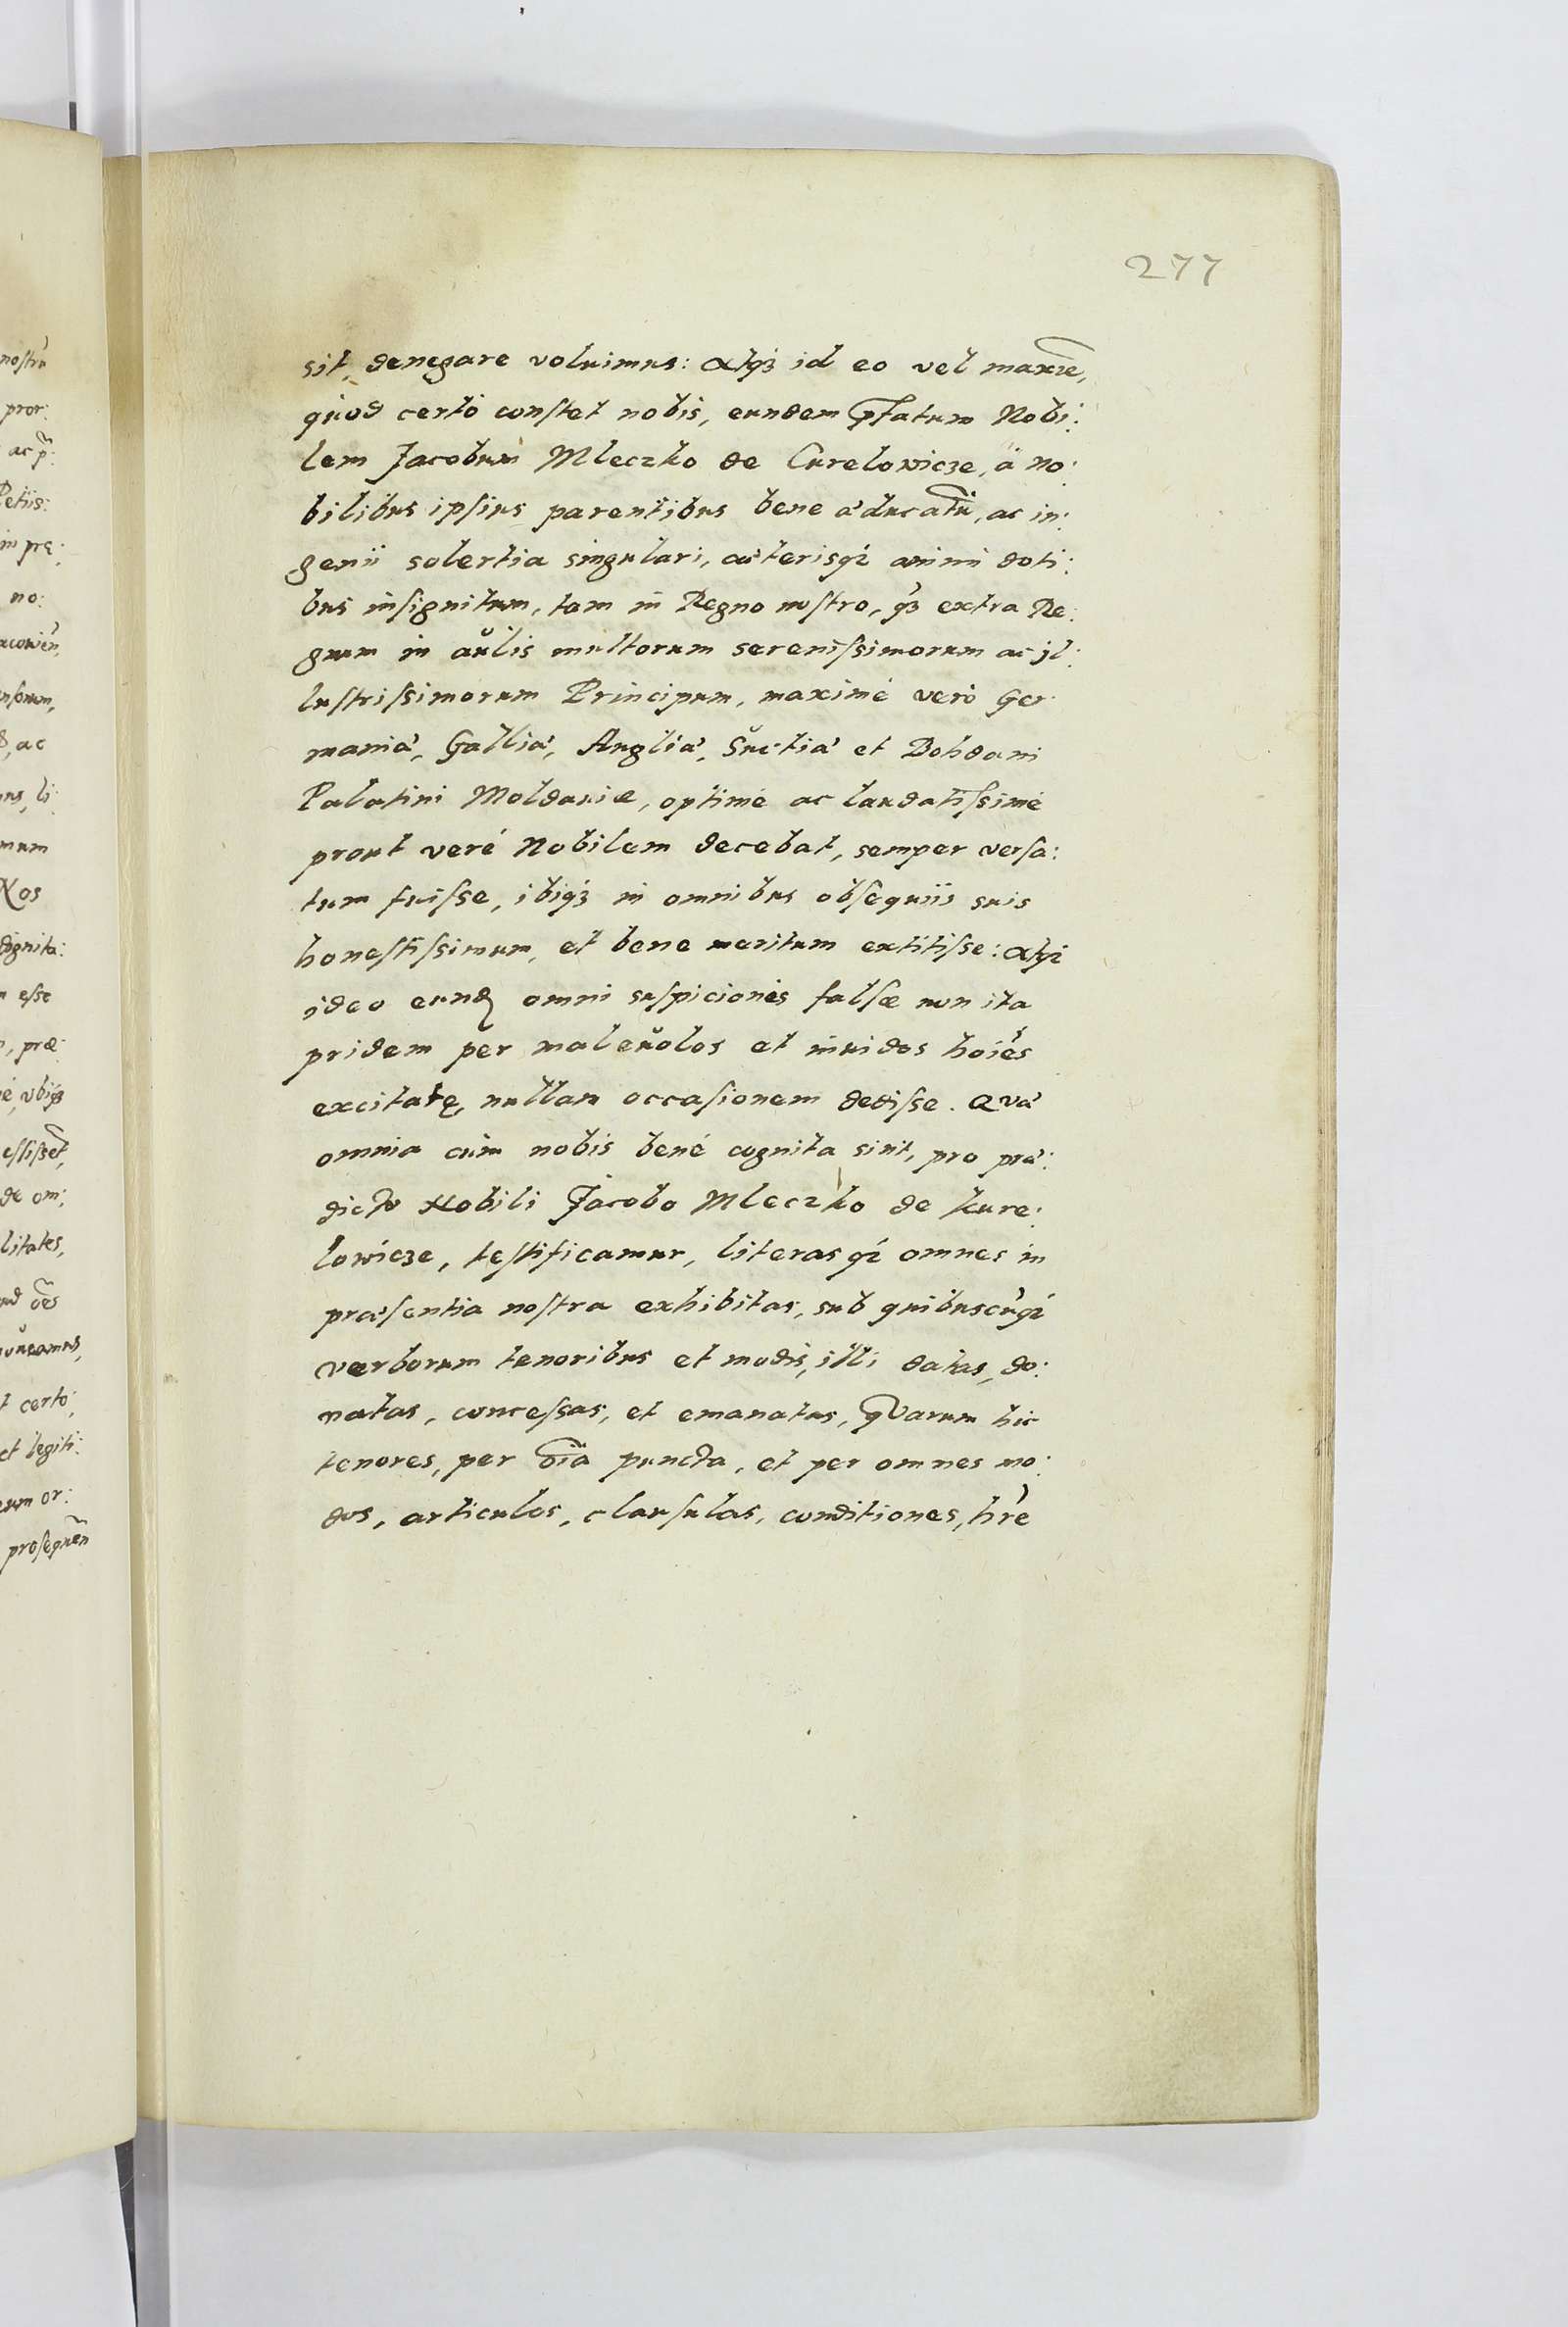 277
sit, denegare voluimus: Atqȝ id eo vel maxīe,
quod certò conſtet nobis, eundem p̄fatum Nobi:
lem Jacobum Mleczko de Curelowicze, à no:
bilibus ipſius parentibus bene æducatū, ac in:
genii solertia singulari, cæterisqȝ animi doti:
bus inſignitum, tam in Regno noſtro, qȝ extra Re:
gnum in aŭlis multorum sereniſsimorum ac jl:
luſtriſsimorum Principum, maximè verò Ger
maniæ, Galliæ, Angliæ, Sŭetiæ et Bohdani
Palatini Moldauiæ, optimè ac laudatiſsimè
prout verè Nobilem decebat, semper verſa:
tum fuiſse, ibiqȝ in omnibus obſequiis suis
honeſtiſsimum, et bene meritum extitiſse: Atqȝ
ideo eundꝫ omni suſpicionis falſæ non ita
pridem per maleŭolos et inuidos hoīes
excitatę, nullam occaſionem dediſse. Quæ
omnia cùm nobis benè cognita sint, pro præ:
dicto Nobili Jacobo Mleczko de Kure:
lowicze, teſtificamur, literasqȝ omnes in
præſentia noſtra exhibitas, sub quibuscūqȝ
verborum tenoribus et modis, illi datas, do:
natas, conceſsas, et emanatas, quarum hic
tenores, per oīa puncta, et per omnes mo:
dos, articulos, clauſulas, conditiones, hr̄e
nostrū
pror:
ac p̄:
in prę:
no:
ac
li
mum
Nos
dignita:
esse
præ:
vbiqȝ
de om:
litates,
oēs
certò
et legiti:
or:
proſequen̄